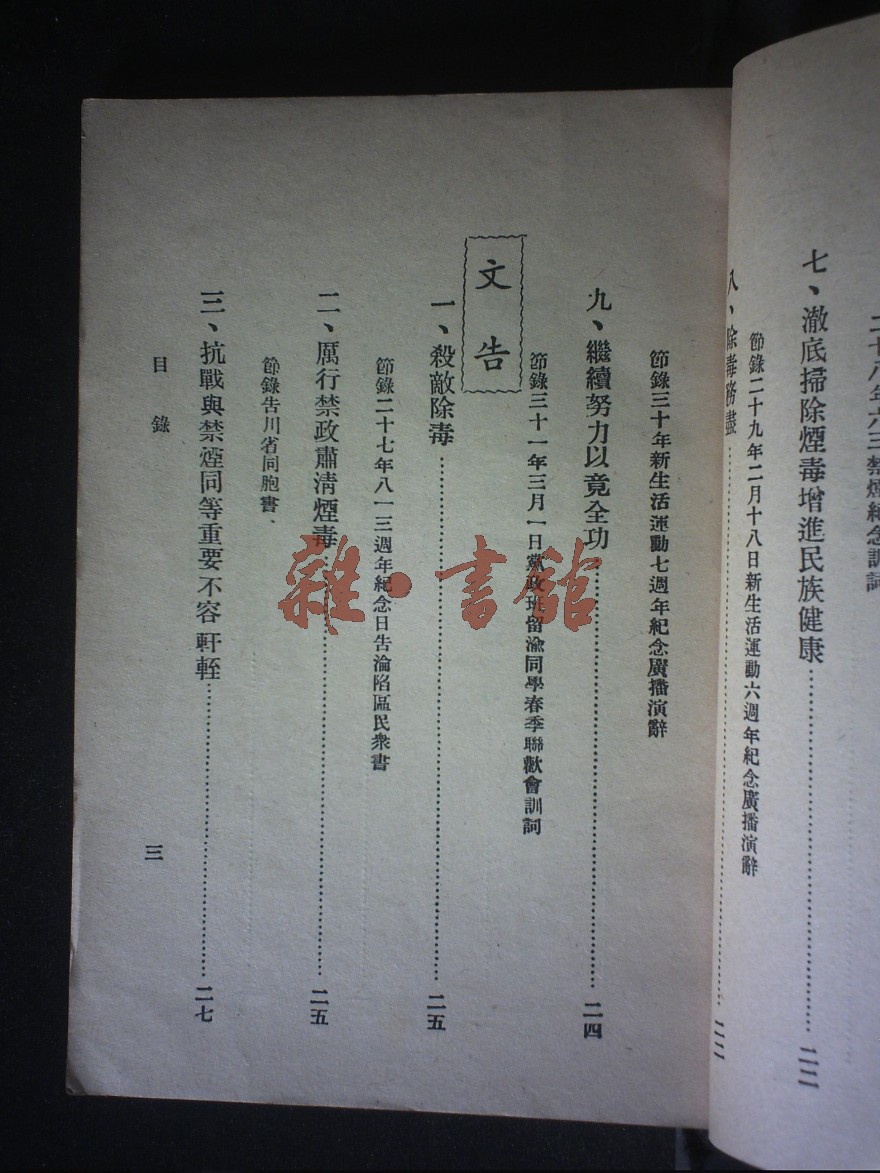 二十八年六三禁煙紀念訓詞
七、澈底掃除煙毒增進民族健康…………二二
節錄二十九年二月十八日新生活運動六週年紀念廣播演辭
八、除毒務盡…………二二
節錄三十年新生活運動七週年紀念廣播演辭
九、繼續努力以竟全功…………二四
節錄三十一年三月一日黨政班留渝同學春季聯歡會訓詞
文告
一、殺敵除毒…………二五
節錄二十七年八一三週年紀念日告淪陷區民衆書
二、厲行禁政肅清煙毒…………二五
節錄告川省同胞書、
三、抗戰與禁煙同等重要不容軒輊…………二七
目錄
三
雜·書館